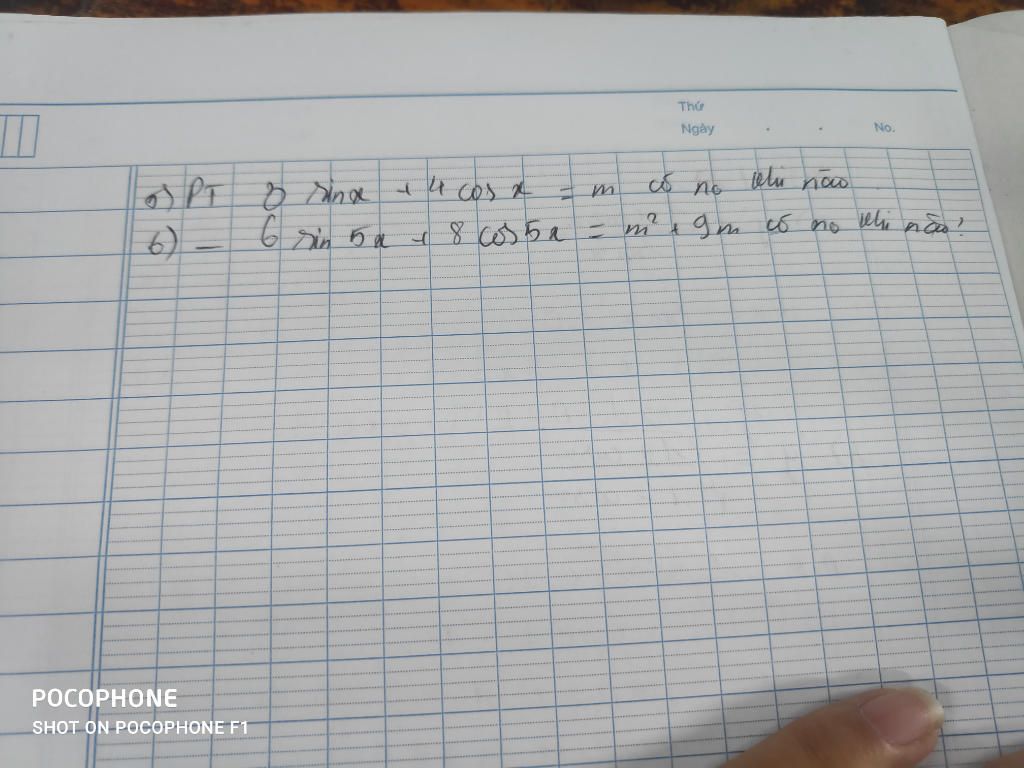 Thứ
Ngày . . No.
a) PT 3 sin x + 4 cos x = m có no khi nào
b) — 6 sin 5x + 8 cos 5x = m² + 9m có no khi nào?
POCOPHONE
SHOT ON POCOPHONE F1